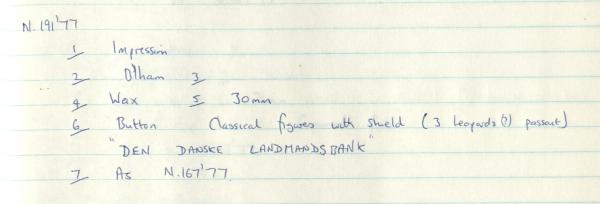 N.191'77
1 Impression
2 O'ham 3
4 Wax 5 30mm
6 Button Classical figures with shield (3 leopards(?) passant)
"DEN DANSKE LANDMANDSBANK"
7 As N.167'77